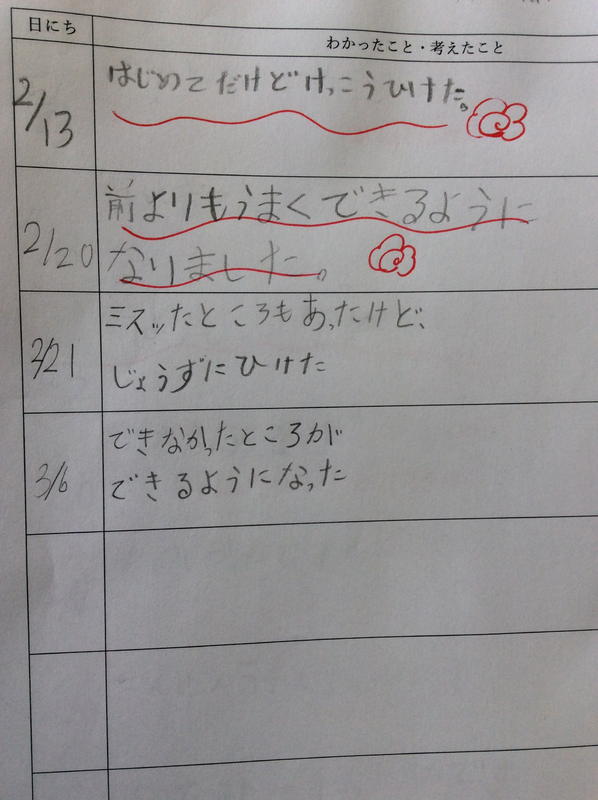 日にち
わかったこと・考えたこと
2/13
はじめてだけどけっこうひけた。
2/20
前よりもうまくできるように
なりました。
3/21
ミスッたところもあったけど、
じょうずにひけた
3/6
できなかったところが
できるようになった